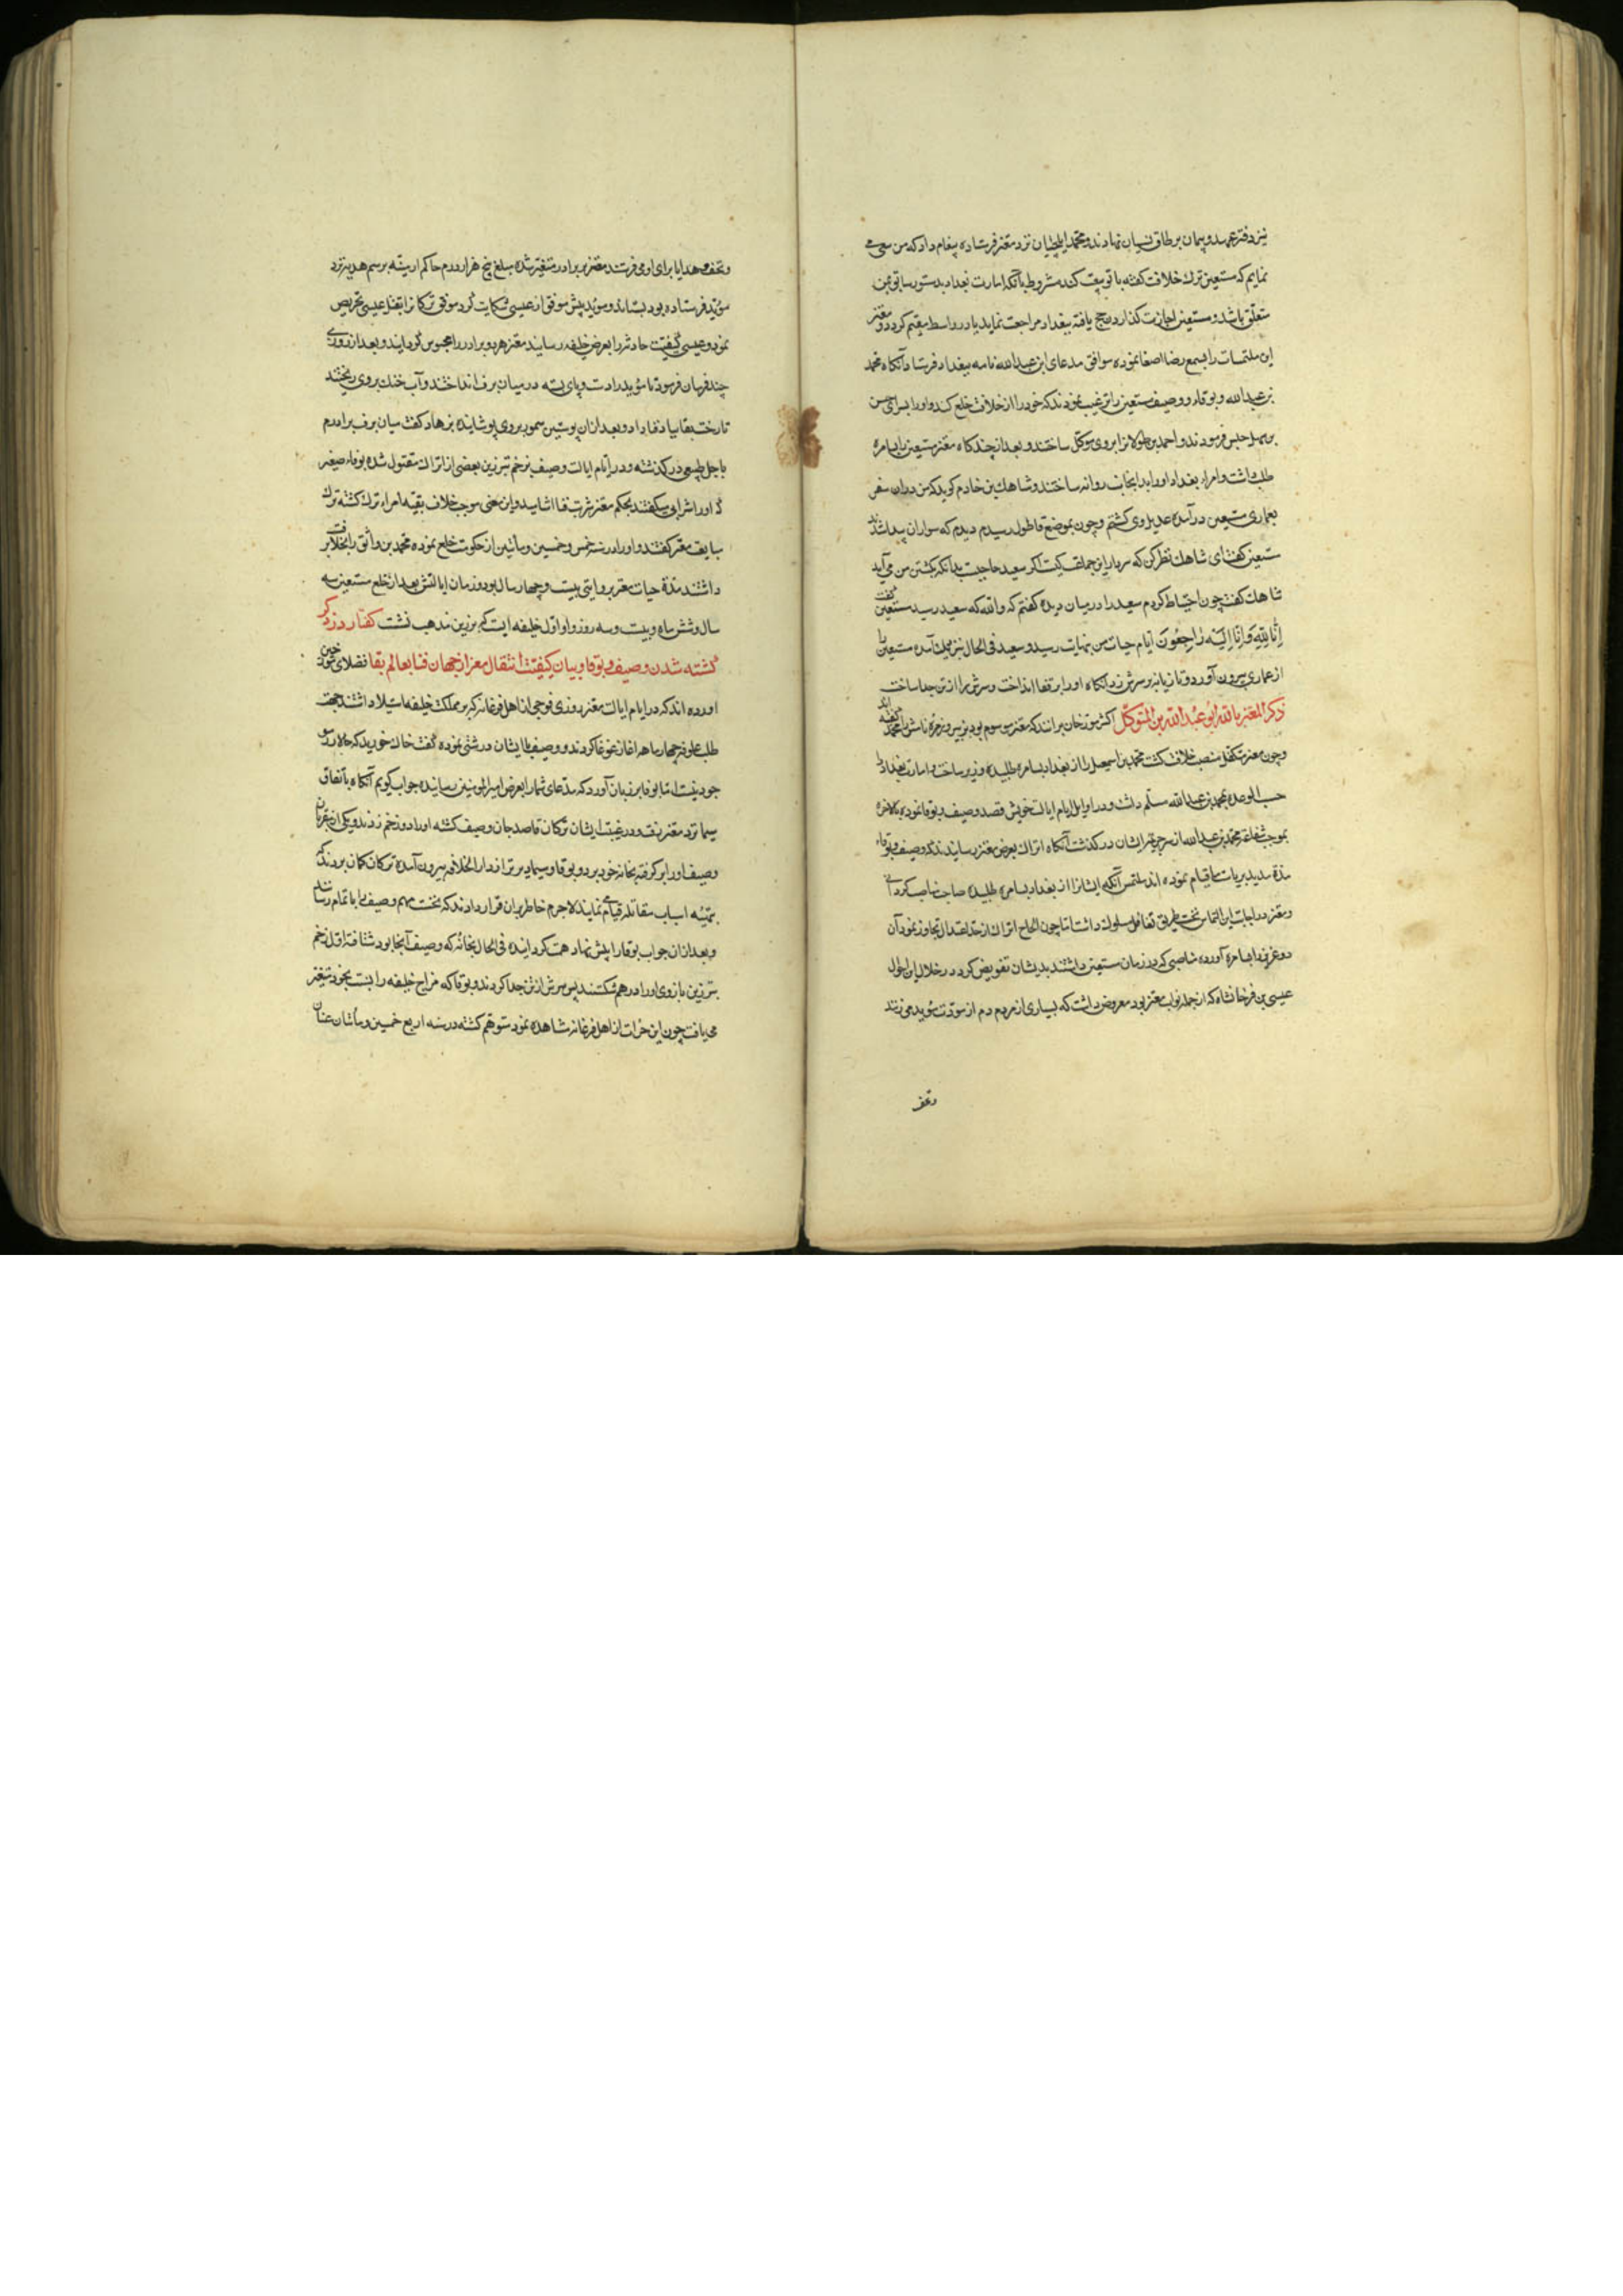 نیز دفتر عهد و پیمان بر طاق نسیان نهادند و محمد ایلچیان نزد معتز فرستاده پیغام داد که من سعی می
نمایم که مستعین ترک خلافت گفته با تو بیعت کند مشروط بآنکه امارت بغداد بدستور سابق بمن
متعلق باشد و مستعین اجازت گذاردن حج یافته ببغداد مراجعت نماید یا در واسط مقیم گردد و معتز
این ملتمسات را بسمع رضا اصغا نموده موافق مدعای ابن عبدالله نامه ببغداد فرستاد آنکاه محمد
بن عبدالله و بوقاء و وصیف مستعین را ترغیب نمودند که خود را از خلافت خلع کند و او را بسرای حسن
بن سهل حبس فرمودند و احمد بن طولانرا بروی موکل ساختند و بعد از چند کاه معتز مستعین را بسامره
طلب داشت و امراء بغداد او را بدانجانب روانه ساختند و شاهک بن خادم کوید که من در ان سفر
بعماری مستعین در آمده عدیل وی کشتم و چون بموضع قاطول رسیدم دیدم که سواران پیدا شدند
مستعین کفت ای شاهک نظر کن که سردار این جماعت کیست اکر سعید حاجبست بدانکه بکشتن من می آید
شاهک کفت چون احتیاط کردم سعید را در میان دیده کفتم که والله که سعید رسید مستعین کفت
اِنّا لِلّهِ وَاِنّا اِلَیْهِ رٰاجِعُونَ ایام حیات من بنهایت رسید و سعید فی الحال بنزدیک آمده مستعین را
از عماری بیرون آورد و تازیانه بر سرش زد انکاه او را بر قفا انداخت و سرش را از تن جدا ساخت
ذکر المعتز بالله ابو عبد الله بن المتوکل اکثر مورخان برانند که معتز موسوم بود بزبیر و زمرۀ نامش را محمد کفته اند
و چون معتز متکفل منصب خلافت کشت محمد بن اسمعیل را از بغداد بسامره طلبیده وزیر ساخت و امارت بغداد را
حسب الوعده بمحمد بن عبدالله مسلم داشت و در اوایل ایام ایالت خویش قصد وصیف و بوقا نموده بالاخره
بموجب شفاعت محمد بن عبدالله از سر جریمۀ ایشان در کذشت آنکاه اتراک بعرض معتز رسانیدند که وصیف و بوقاء
مدة مدید بریاست ما قیام نموده اند ملتمس آنکه ایشانرا از بغداد بسامره طلبیده صاحب مناصب کردانی
و معتز در اجابت این التماس نخست طریق تغافل مسلوک داشت اما چون الحاح اتراک از حد اعتدال تجاوز نمود آن
دو عزیز را بسامره آورده مناصبی که در زمان مستعین داشتند بدیشان تفویض کرد در خلال این احوال
عیسی بن فرخانشاه که از جمله نواب معتز بود معروض داشت که بسیاری از مردم دم از مودت مؤید می زنند
و تحف
و تحف و هدایا برای او می فرستند معتز بر برادر متغیر شده مبلغ پنج هزار درم حاکم ارمنیه برسم هدیه نزد
مؤید فرستاده بود بستاند و مؤید پیش موفق از عیسی شکایت کرد موفق ترکانرا بقتل عیسی تحریص
نمود و عیسی کیفیت حادثه را بعرض خلیفه رسانید معتز هر دو برادر را محبوس کردانید و بعد از روزی
چند فرمان فرمود تا مؤید را دست و پای بسته در میان برف انداختند و آب خنک بروی ریختند
تا رخت بقا بباد فنا داد و بعد ازان پوستین سمور بروی پوشانیده بزهاد کفت میان برف برادرم
باجل طبیعی در کذشته و در ایام ایالت وصیف بزخم تبرزین بعضی از اتراک مقتول شده بوقاء صغیر
که او را شرابی میکفتند بحکم معتز شربت فنا اشامید و این معنی موجب خلاف بقیه امراء ترک کشته ترک
مبایعت معتز کفتند و او را در سنه خمس و خمسین و مأتین از حکومت خلع نموده محمد بن واثق را بخلافت بر
داشتند مدة حیات معتز بروایتی بیست و چهار سال بود و زمان ایالتش بعد از خلع مستعین سه
سال و شش ماه و بیست و سه روز و او اول خلیفه ایست که بر زین مذهب نشست کفتار در ذکر
کشته شدن وصیف و بوقا و بیان کیفیت انتقال معتز از جهان فنا بعالم بقا فضلای سخن
اورده اند که در ایام ایالت معتز روزی فوجی از اهل فرغانه که بر مملکت خلیفه استیلا داشتند بجهت
طلب علوفه چهار ماهه اغاز غوغا کردند و وصیف با ایشان درشتی نموده کفت خاک خورید که حالا
جود نیست اما بوقا بر زبان آورد که مدعای شما را بعرض امیرالمؤمنین رسانیده جواب کویم آنکاه باتفاق
سیما نزد معتز رفت و در غیبت ایشان ترکان قاصد جان وصیف کشته او را دو زخم زدند و یکی از
وصیف او را بر کرفته بخانه خود برد و بوقا و سیما دیرتر از دار الخلافه بیرون آمده ترکان کمان بردند که
بتهیه اسباب مقاتله قیام نمایند لاجرم خاطر بران قرار دادند که نخست مهم وصیف را باتمام رسانند
و بعد ازان جواب بوقا را پیش نهاد همت کردانیده فی الحال بخانۀ که وصیف آنجا بود شتافته اول زخم
تبرزین بازوی او را در هم شکستند پس سرش از تن جدا کردند و بوقا که مزاج خلیفه را نسبت بخود متغیر
می یافت چون این جرات از اهل فرغانه مشاهده نمود متوهم کشته در سنه اربع خمسین و مأتین عنان